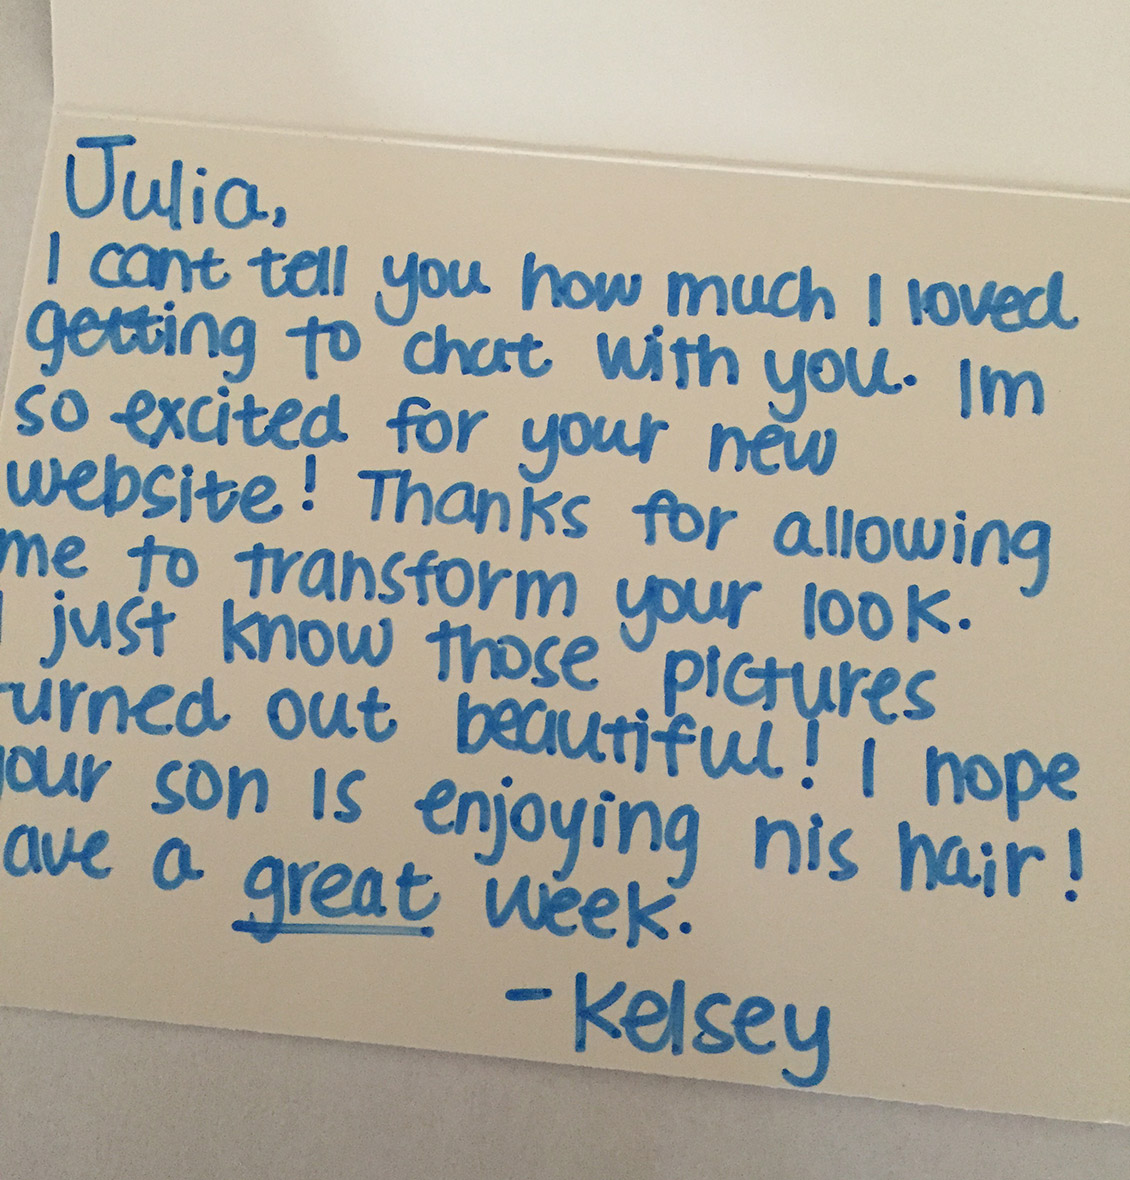 Julia,
I cant tell you how much I loved
getting to chat with you. Im
so excited for your new
website! Thanks for allowing
me to transform your look.
I just know those pictures
turned out beautiful! I hope
your son is enjoying his hair!
ave a great week.
- Kelsey